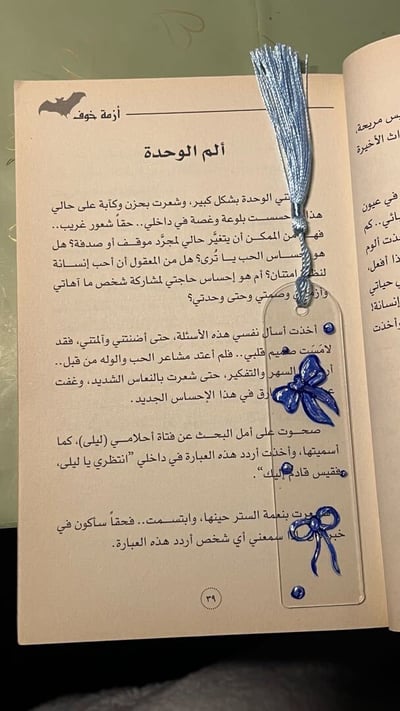 أزمة خوف
ألم الوحدة
الوحدة بشكل كبير، وشعرت بحزن وكآبة على حالي
هذا حسست بلوعة وغصة في داخلي.. حقاً شعور غريب..
من الممكن أن يتغيَّر حالي لمجرَّد موقف أو صدفة؟ هل
هو إحساس الحب يا تُرى؟ هل من المعقول أن أحب إنسانة
امتنان؟ أم هو إحساس حاجتي لمشاركة شخص ما آهاتي
وصمتي وحتى وحدتي؟
أخذت أسأل نفسي هذه الأسئلة، حتى أضنتني وآلمتني، فقد
لامَسَت صميم قلبي.. فلم أعتد مشاعر الحب والوله من قبل..
السهر والتفكير، حتى شعرت بالنعاس الشديد، وغفت
في هذا الإحساس الجديد.
صحوت على أمل البحث عن فتاة أحلامي (ليلى)، كما
أسميتها، وأخذت أردد هذه العبارة في داخلي "انتظري يا ليلى،
فقيس قادم إليك".
بنعمة الستر حينها، وابتسمت.. فحقاً سأكون في
سمعني أي شخص أردد هذه العبارة.
٣٩
يس مريحة،
الأخيرة
في عيون
كم
ألوم
أفعل،
حياتي
إنسانة!
وأخذت